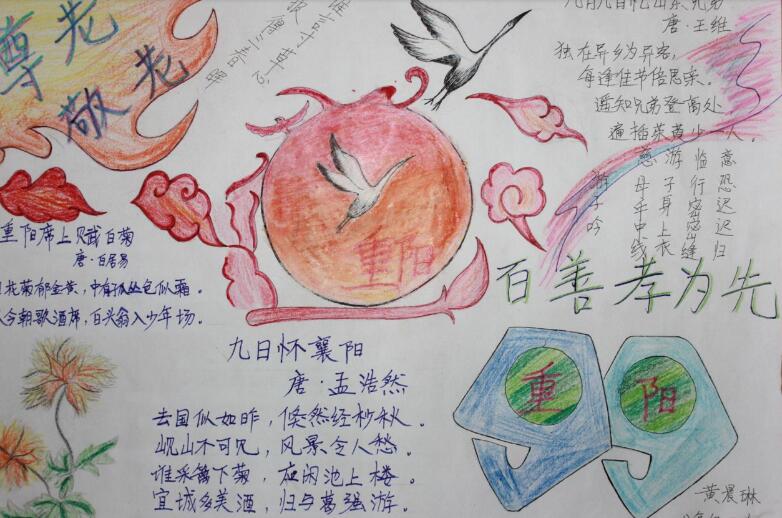 尊老
敬老
谁言寸草心
报得三春晖
九月九日忆山东兄弟
唐·王维
独在异乡为异客，
每逢佳节倍思亲。
遥知兄弟登高处，
遍插茱萸少一人。
游子吟
慈母手中线
游子身上衣
临行密密缝
意恐迟迟归
重阳
重阳席上赋白菊
唐·白居易
花菊郁金黄，中有孤丛色似霜。
今朝歌酒席，白头翁入少年场。
百善孝为先
九日怀襄阳
唐·孟浩然
去国似如昨，倏然经杪秋。
岘山不可见，风景令人愁。
谁采篱下菊，应闲池上楼。
宜城多美酒，归与葛强游。
重
阳
黄晨琳